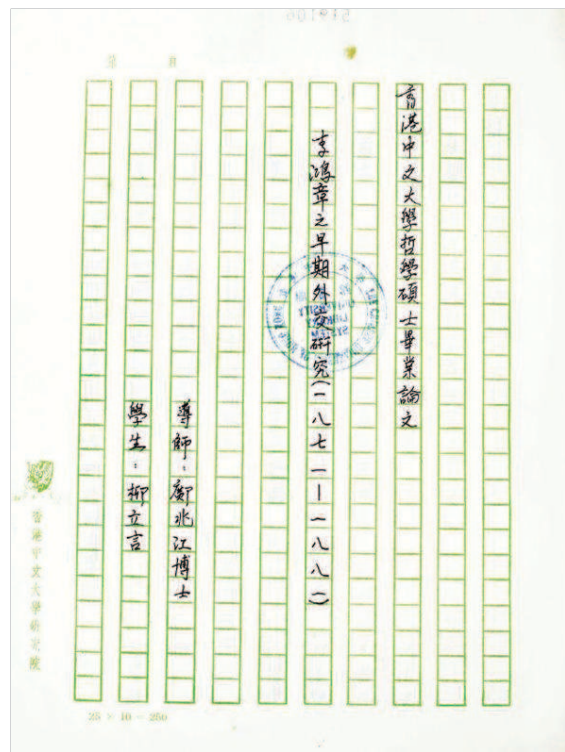 第 頁
香港中文大學哲學碩士畢業論文
李鴻章之早期外交研究(一八七一—一八八一)
導師:鄺兆江博士
學生:柳立言
香港中文大學研究院
25 × 10 = 250